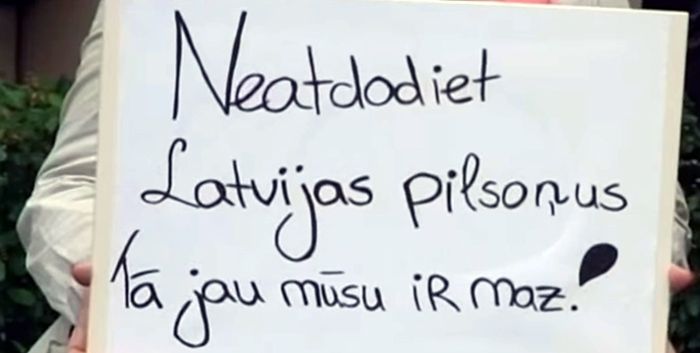 Neatdodiet
Latvijas pilsoņus
Tā jau mūsu iR maz!